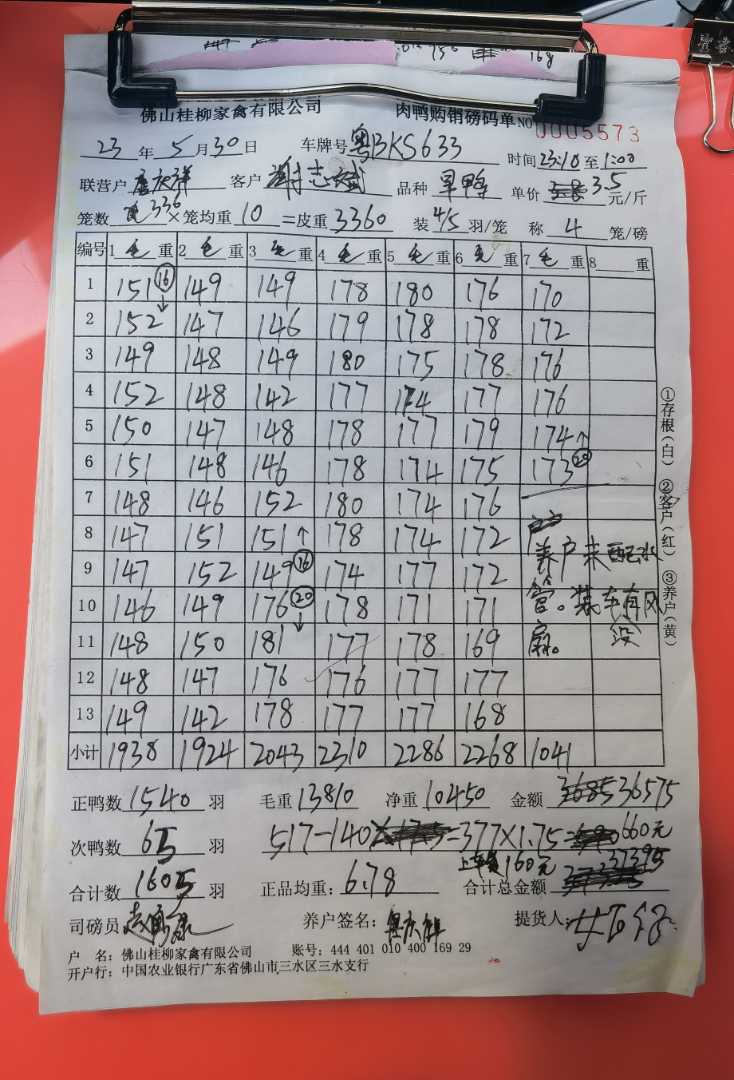 佛山桂柳家禽有限公司 肉鸭购销磅码单 NO 0005573
23 年 5 月 30 日 车牌号 粤BKS633 时间 23:10 至 1:00
联营户 客户 谢志斌 品种 旱鸭 单价 3.5 元/斤
笼数 336 × 笼均重 10 = 皮重 3360 装 4/5 羽/笼 称 4 笼/磅
编号 1 毛 重 2 毛 重 3 毛 重 4 毛 重 5 毛 重 6 毛 重 7 毛 重 8 重
1 151 ⑯↓ 149 149 178 180 176 170
2 152 147 146 179 178 178 172
3 149 148 149 180 175 178 176
4 152 148 142 177 174 177 176
5 150 147 148 178 177 179 174 ↑
6 151 148 146 178 174 175 173 ⑳
7 148 146 152 180 174 176
8 147 151 151 ↑ 178 174 172
9 147 152 149 ⑯ 174 177 172
10 146 149 176 ⑳↓ 178 171 171
11 148 150 181 177 178 169
12 148 147 176 176 177 177
13 149 142 178 177 177 168
小计 1938 1924 2043 2310 2286 2268 1041
养户未配水
管。装车有风
扇。 没
①存根(白) ②客户(红) ③养户(黄)
正鸭数 1540 羽 毛重 13810 净重 10450 金额 36575
次鸭数 65 羽 517-140=377×1.75=660元
上车费160元
合计数 1605 羽 正品均重: 6.78 合计总金额 37395
司磅员 养户签名: 提货人:
户 名: 佛山桂柳家禽有限公司 账号: 444 401 010 400 169 29
开户行: 中国农业银行广东省佛山市三水区三水支行